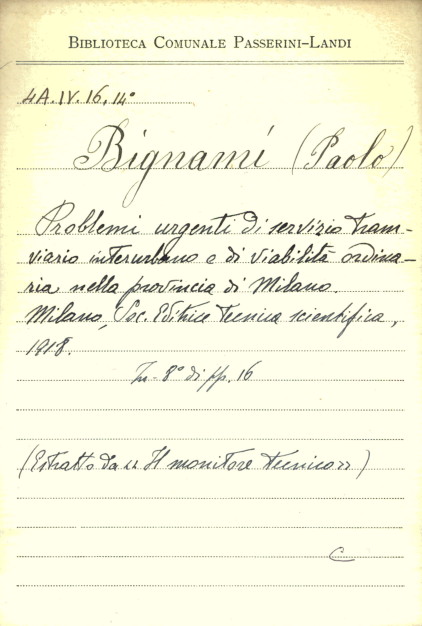 BIBLIOTECA COMUNALE PASSERINI-LANDI
4A.IV.16.14°
Bignami (Paolo)
Problemi urgenti di servizio tram-
viario interurbano e di viabilità ordina-
ria nella provincia di Milano.
Milano, Soc. Editrice tecnica scientifica,
1918.
In-8° di pp. 16
(Estratto da "Il monitore tecnico")
C